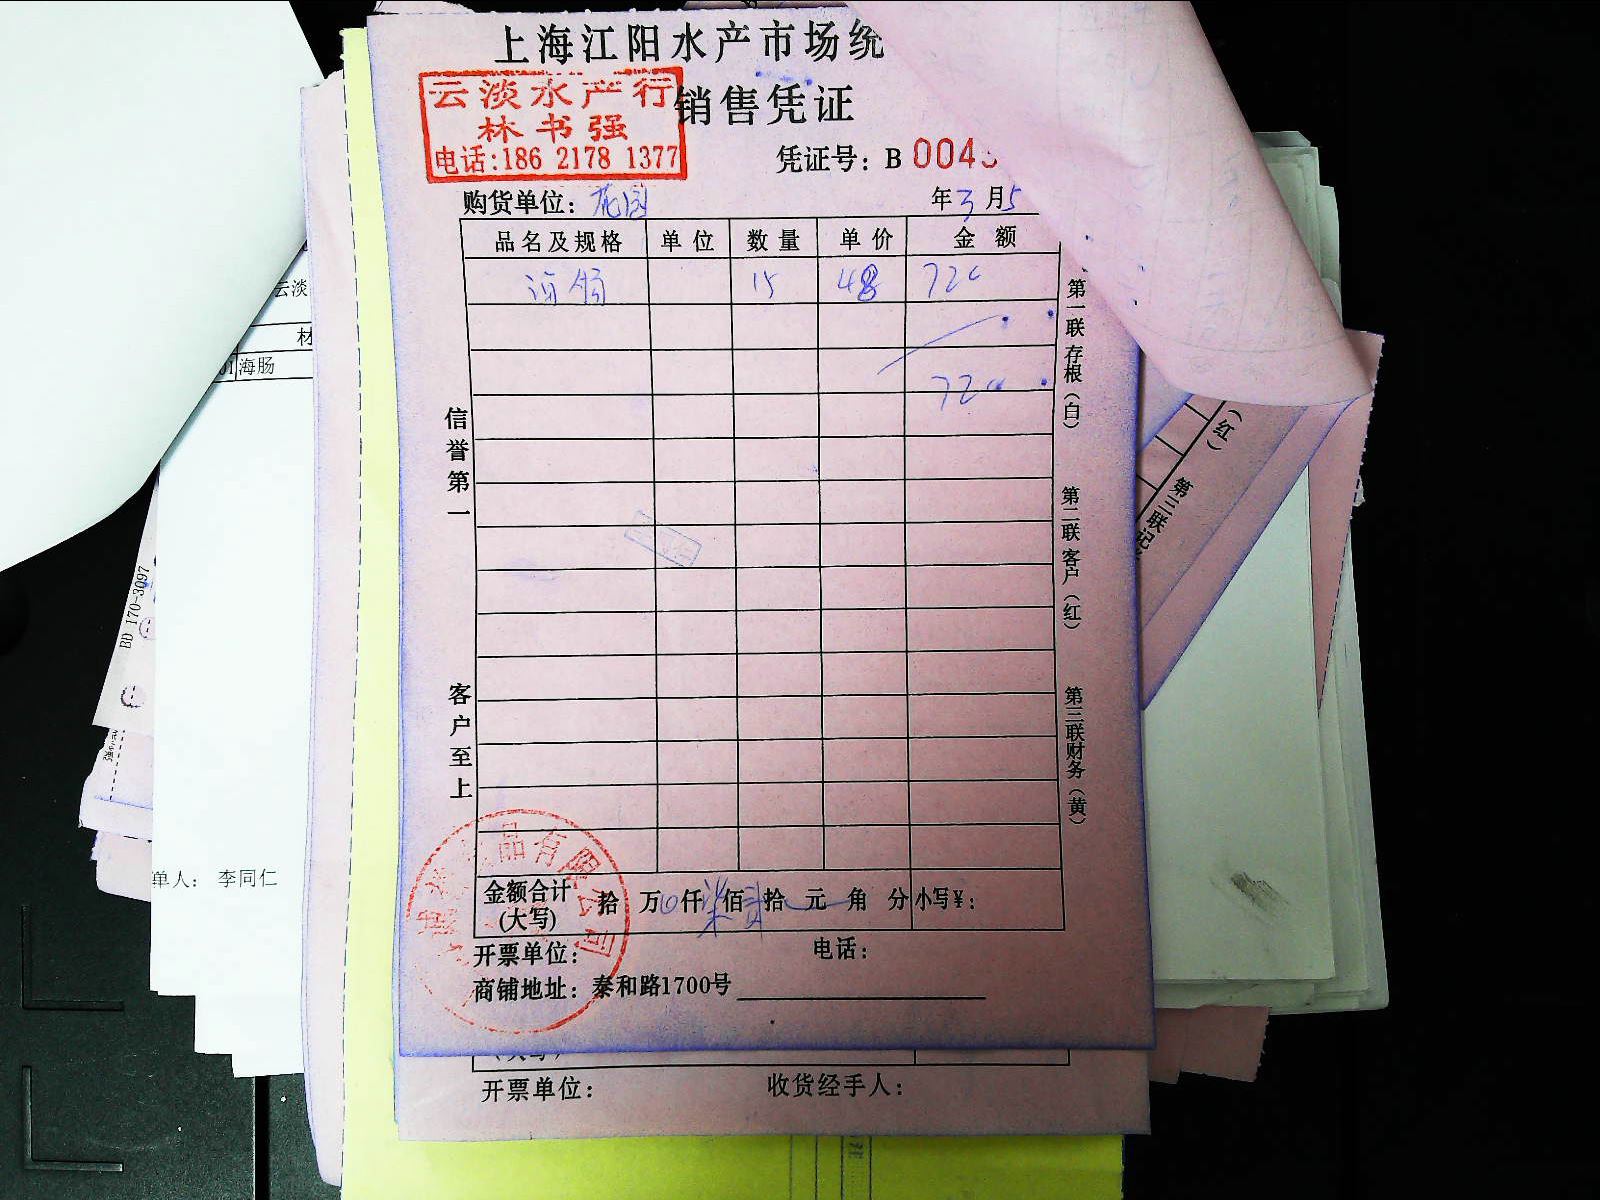 上海江阳水产市场统
销售凭证
云淡水产行
林书强
电话:186 2178 1377
凭证号: B 0043
购货单位: 花园
年3月5
品名及规格 单位 数量 单价 金额
海肠 15 48 720
720
信誉第一
客户至上
第一联存根(白)
第二联客户(红)
第三联财务(黄)
金额合计(大写) 拾 万0仟柒佰贰拾 元 角 分 小写¥:
开票单位: 电话:
商铺地址: 泰和路1700号
品有限公司
开票单位: 收货经手人:
云淡
材
01 海肠
单人: 李同仁
BD 170-3097
(红)
第三联记